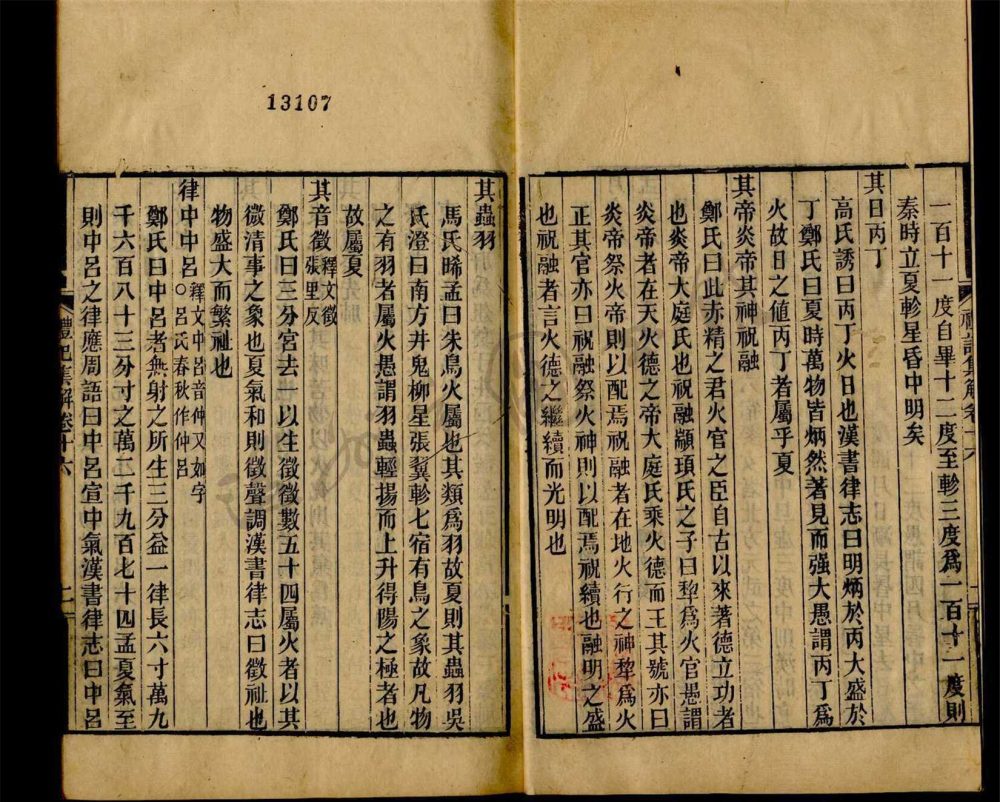 一百十一度自畢十二度至軫三度爲一百十一度則
秦時立夏軫星昏中明矣
其日丙丁
高氏誘曰丙丁火日也漢書律志曰明炳於丙大盛於
丁鄭氏曰夏時萬物皆炳然著見而强大愚謂丙丁爲
火故日之値丙丁者屬乎夏
其帝炎帝其神祝融
鄭氏曰此赤精之君火官之臣自古以來著德立功者
也炎帝大庭氏也祝融顓頊氏之子曰犂爲火官愚謂
炎帝者在天火德之帝大庭氏乘火德而王其號亦曰
炎帝祭火帝則以配焉祝融者在地火行之神犂爲火
正其官亦曰祝融祭火神則以配焉祝續也融明之盛
也祝融者言火德之繼續而光明也
其蟲羽
馬氏晞孟曰朱鳥火屬也其類爲羽故夏則其蟲羽吳
氏澄曰南方井鬼柳星張翼軫七宿有鳥之象故凡物
之有羽者屬火愚謂羽蟲輕揚而上升得陽之極者也
故屬夏
其音徵釋文徵張里反
鄭氏曰三分宮去一以生徵徵數五十四屬火者以其
微清事之象也夏氣和則徵聲調漢書律志曰徵祉也
物盛大而繁祉也
律中中呂釋文中呂音仲又如字○呂氏春秋作仲呂
鄭氏曰中呂者無射之所生三分益一律長六寸萬九
千六百八十三分寸之萬二千九百七十四孟夏氣至
則中呂之律應周語曰中呂宣中氣漢書律志曰中呂
禮記集解卷十六
二
13107